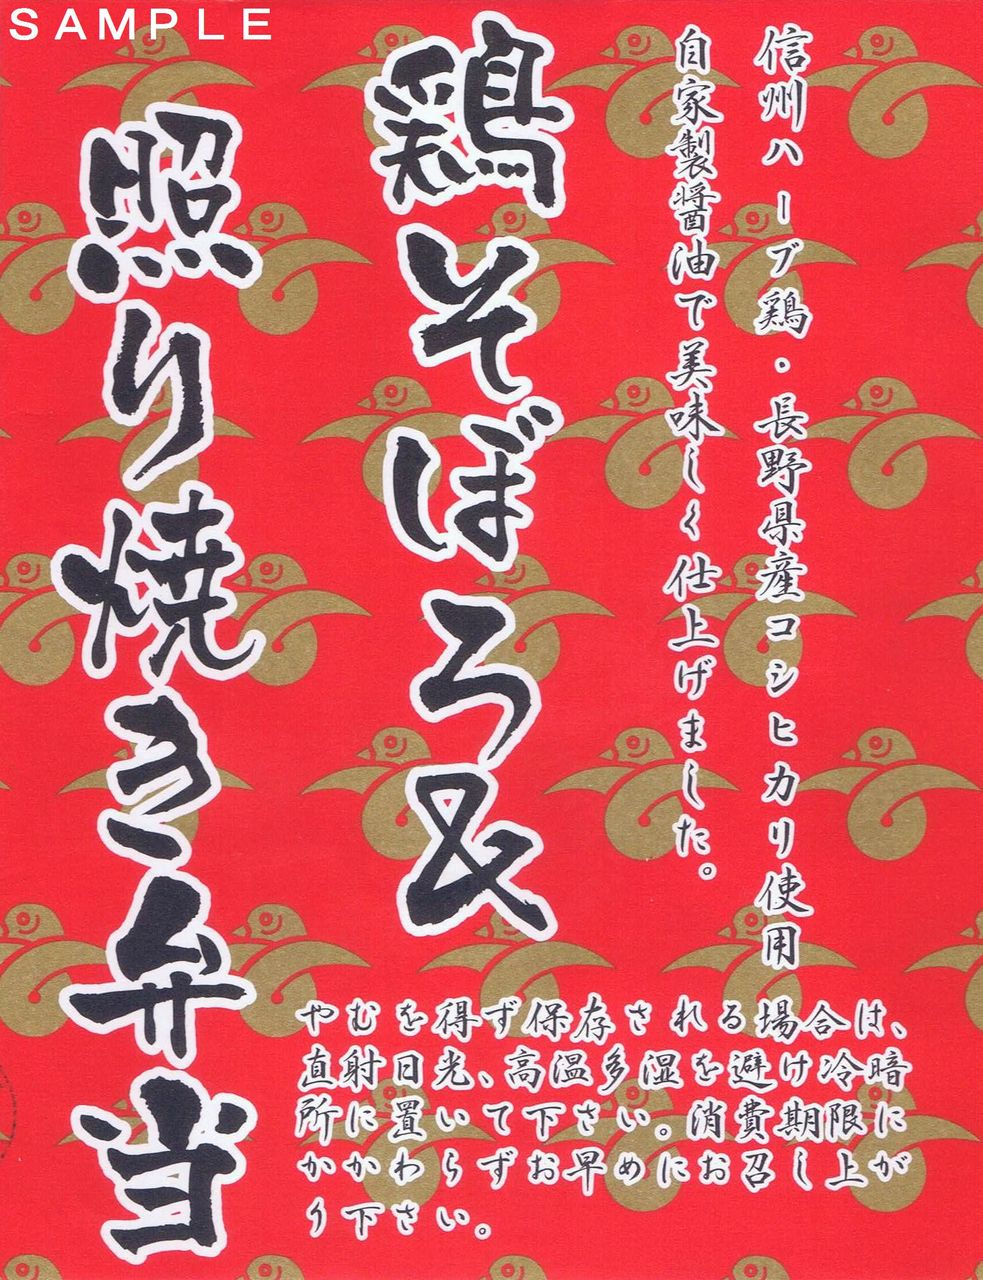 SAMPLE
信州ハーブ鶏・長野県産コシヒカリ使用
自家製醤油で美味しく仕上げました。
鶏そぼろ&
照り焼き弁当
やむを得ず保存される場合は、
直射日光、高温多湿を避け冷暗
所に置いて下さい。消費期限に
かかわらずお早めにお召し上が
り下さい。